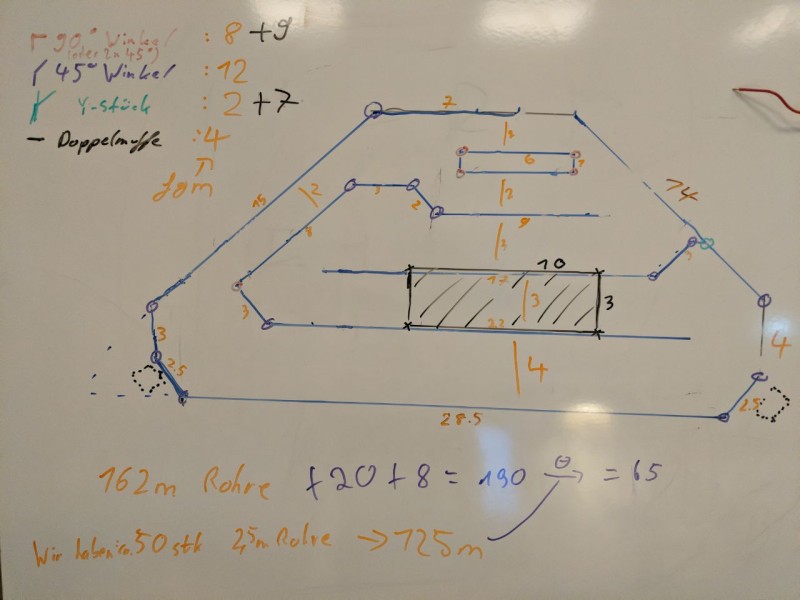 90° Winkel : 8 +9
(oder 2x 45°)
45° Winkel : 12
Y-stück : 2 +7
— Doppelmuffe : 4
7
2
6
14
2
1
2
2
9
8
2
10
17
3
3
3
22
3
4
4
2.5
2.5
28.5
162m Rohre +20+8= 190 = 65
Wir haben ca. 50 stk 2,5m Rohre → 125m